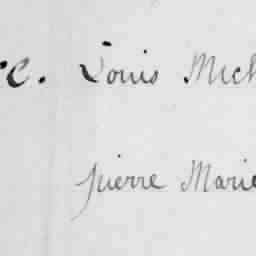 rc. Louis Mich
Pierre Marie